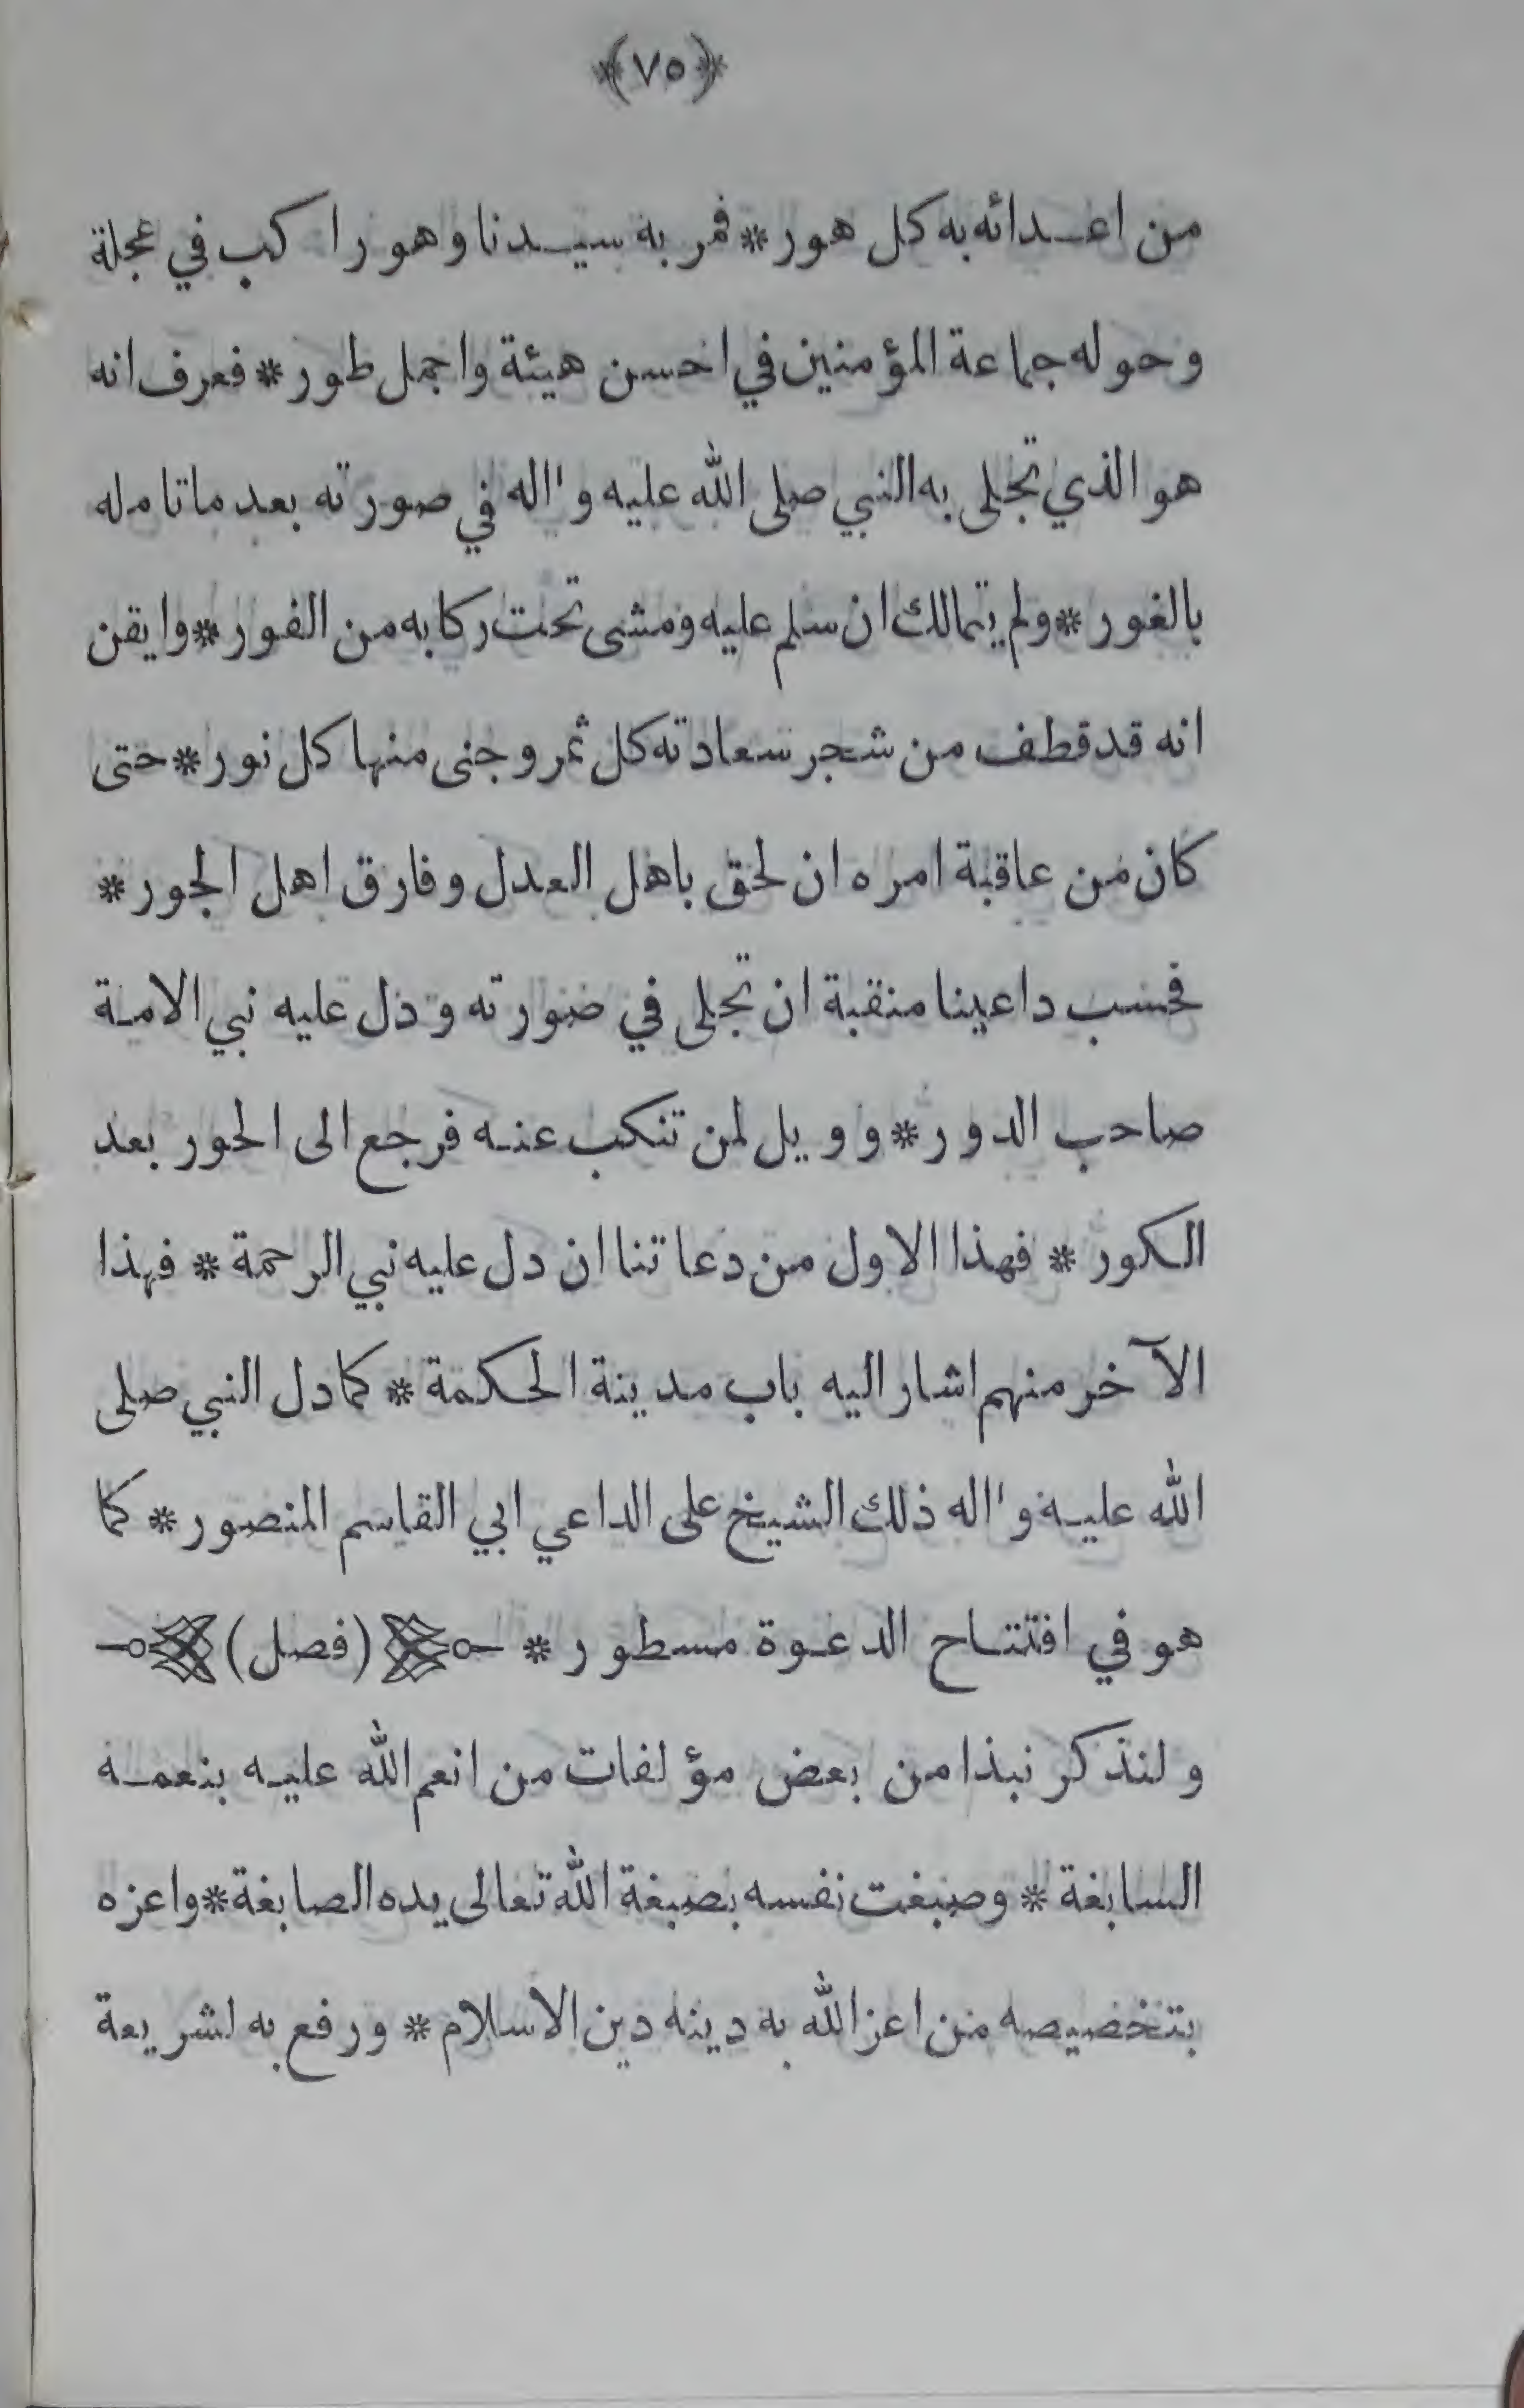 ﴿٧٥﴾
من اعدائه به كل هور * فمر به سيدنا وهو راكب في عجلة
وحوله جماعة المؤمنين في احسن هيئة واجمل طور * فعرف انه
هو الذي تجلى به النبي صلى الله عليه وآله في صورته بعد ما تامله
بالغور * ولم يتمالك ان سلم عليه ومشى تحت ركابه من الفور * وايقن
انه قد قطف من شجر سعادته كل ثمر وجنى منها كل نور * حتى
كان من عاقبة امره ان لحق باهل العدل وفارق اهل الجور *
فحسب داعينا منقبة ان تجلى في صورته ودل عليه نبي الامة
صاحب الدور * وويل لمن تنكب عنه فرجع الى الحور بعد
الكور * فهذا الاول من دعاتنا ان دل عليه نبي الرحمة * فهذا
الآخر منهم اشار اليه باب مدينة الحكمة * كما دل النبي صلى
الله عليه وآله ذلك الشيخ على الداعي ابي القاسم المنصور * كما
هو في افتتاح الدعوة مسطور * (فصل)
ولنذكر نبذا من بعض مؤلفات من انعم الله عليه بنعمه
السابغة * وصبغت نفسه بصبغة الله تعالى يده الصابغة * واعزه
بتخصيصه من اعز الله به دينه دين الاسلام * ورفع به لشريعة